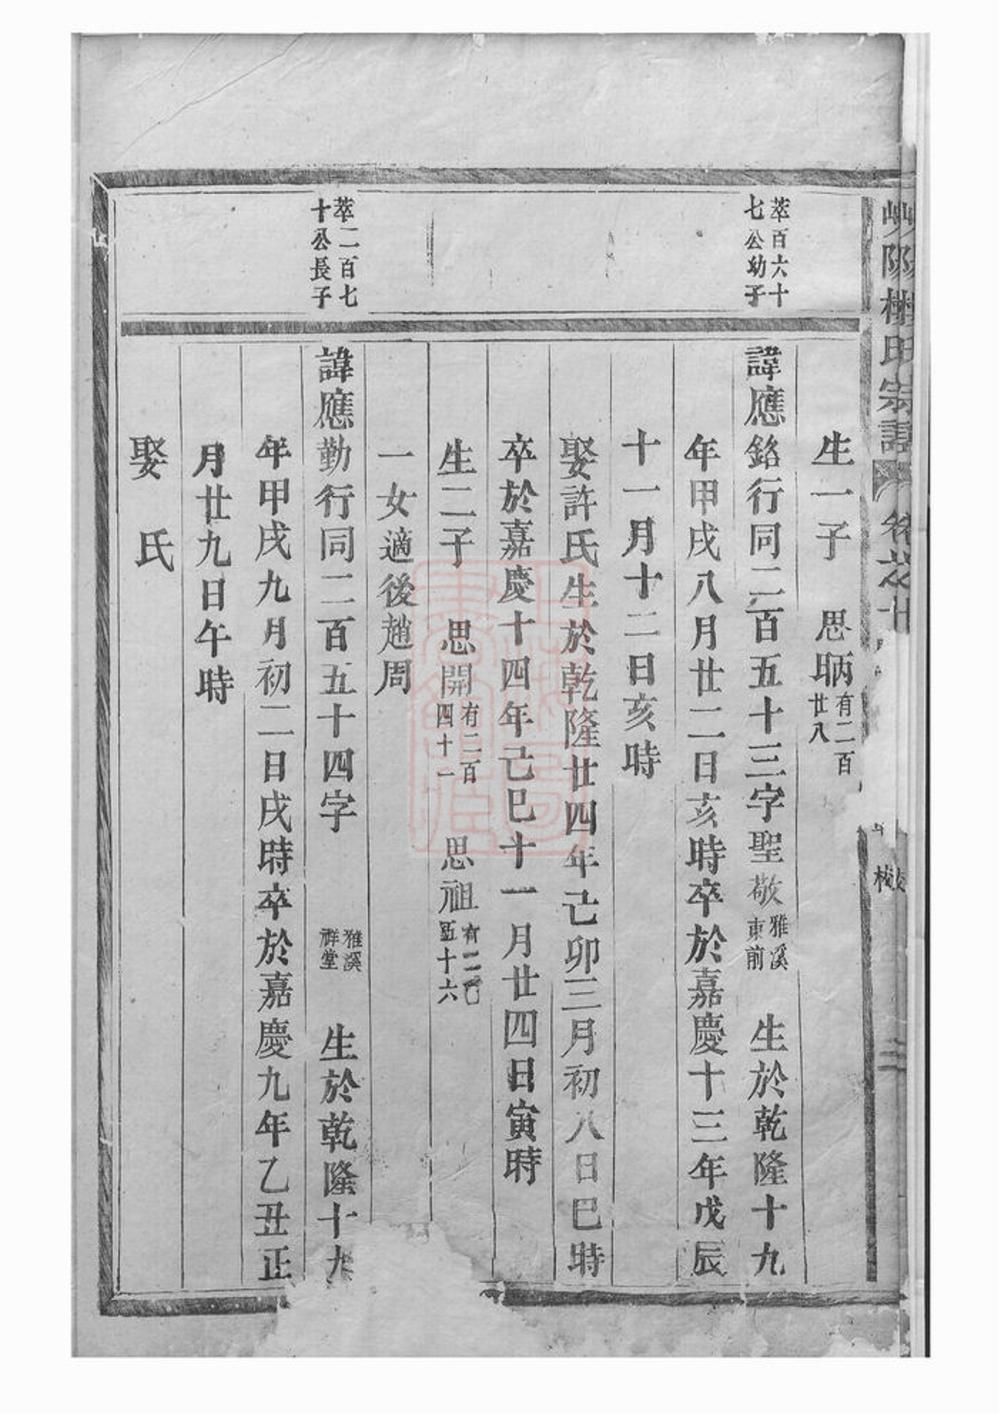 陽樓氏宗譜
校
生一子 思昞有二百廿八
萃百六十七公幼子
諱應銘行同二百五十三字聖敬雅溪東前 生於乾隆十九
年甲戌八月廿二日亥時卒於嘉慶十三年戊辰
十一月十二日亥時
娶許氏生於乾隆廿四年己卯三月初八日巳時
卒於嘉慶十四年己巳十一月廿四日寅時
生二子 思開有二百四十一 思祖有二百五十六
一女適後趙周
萃二百七十公長子
諱應勤行同二百五十四字 雅溪祥堂 生於乾隆十九
年甲戌九月初二日戌時卒於嘉慶九年乙丑正
月廿九日午時
娶 氏